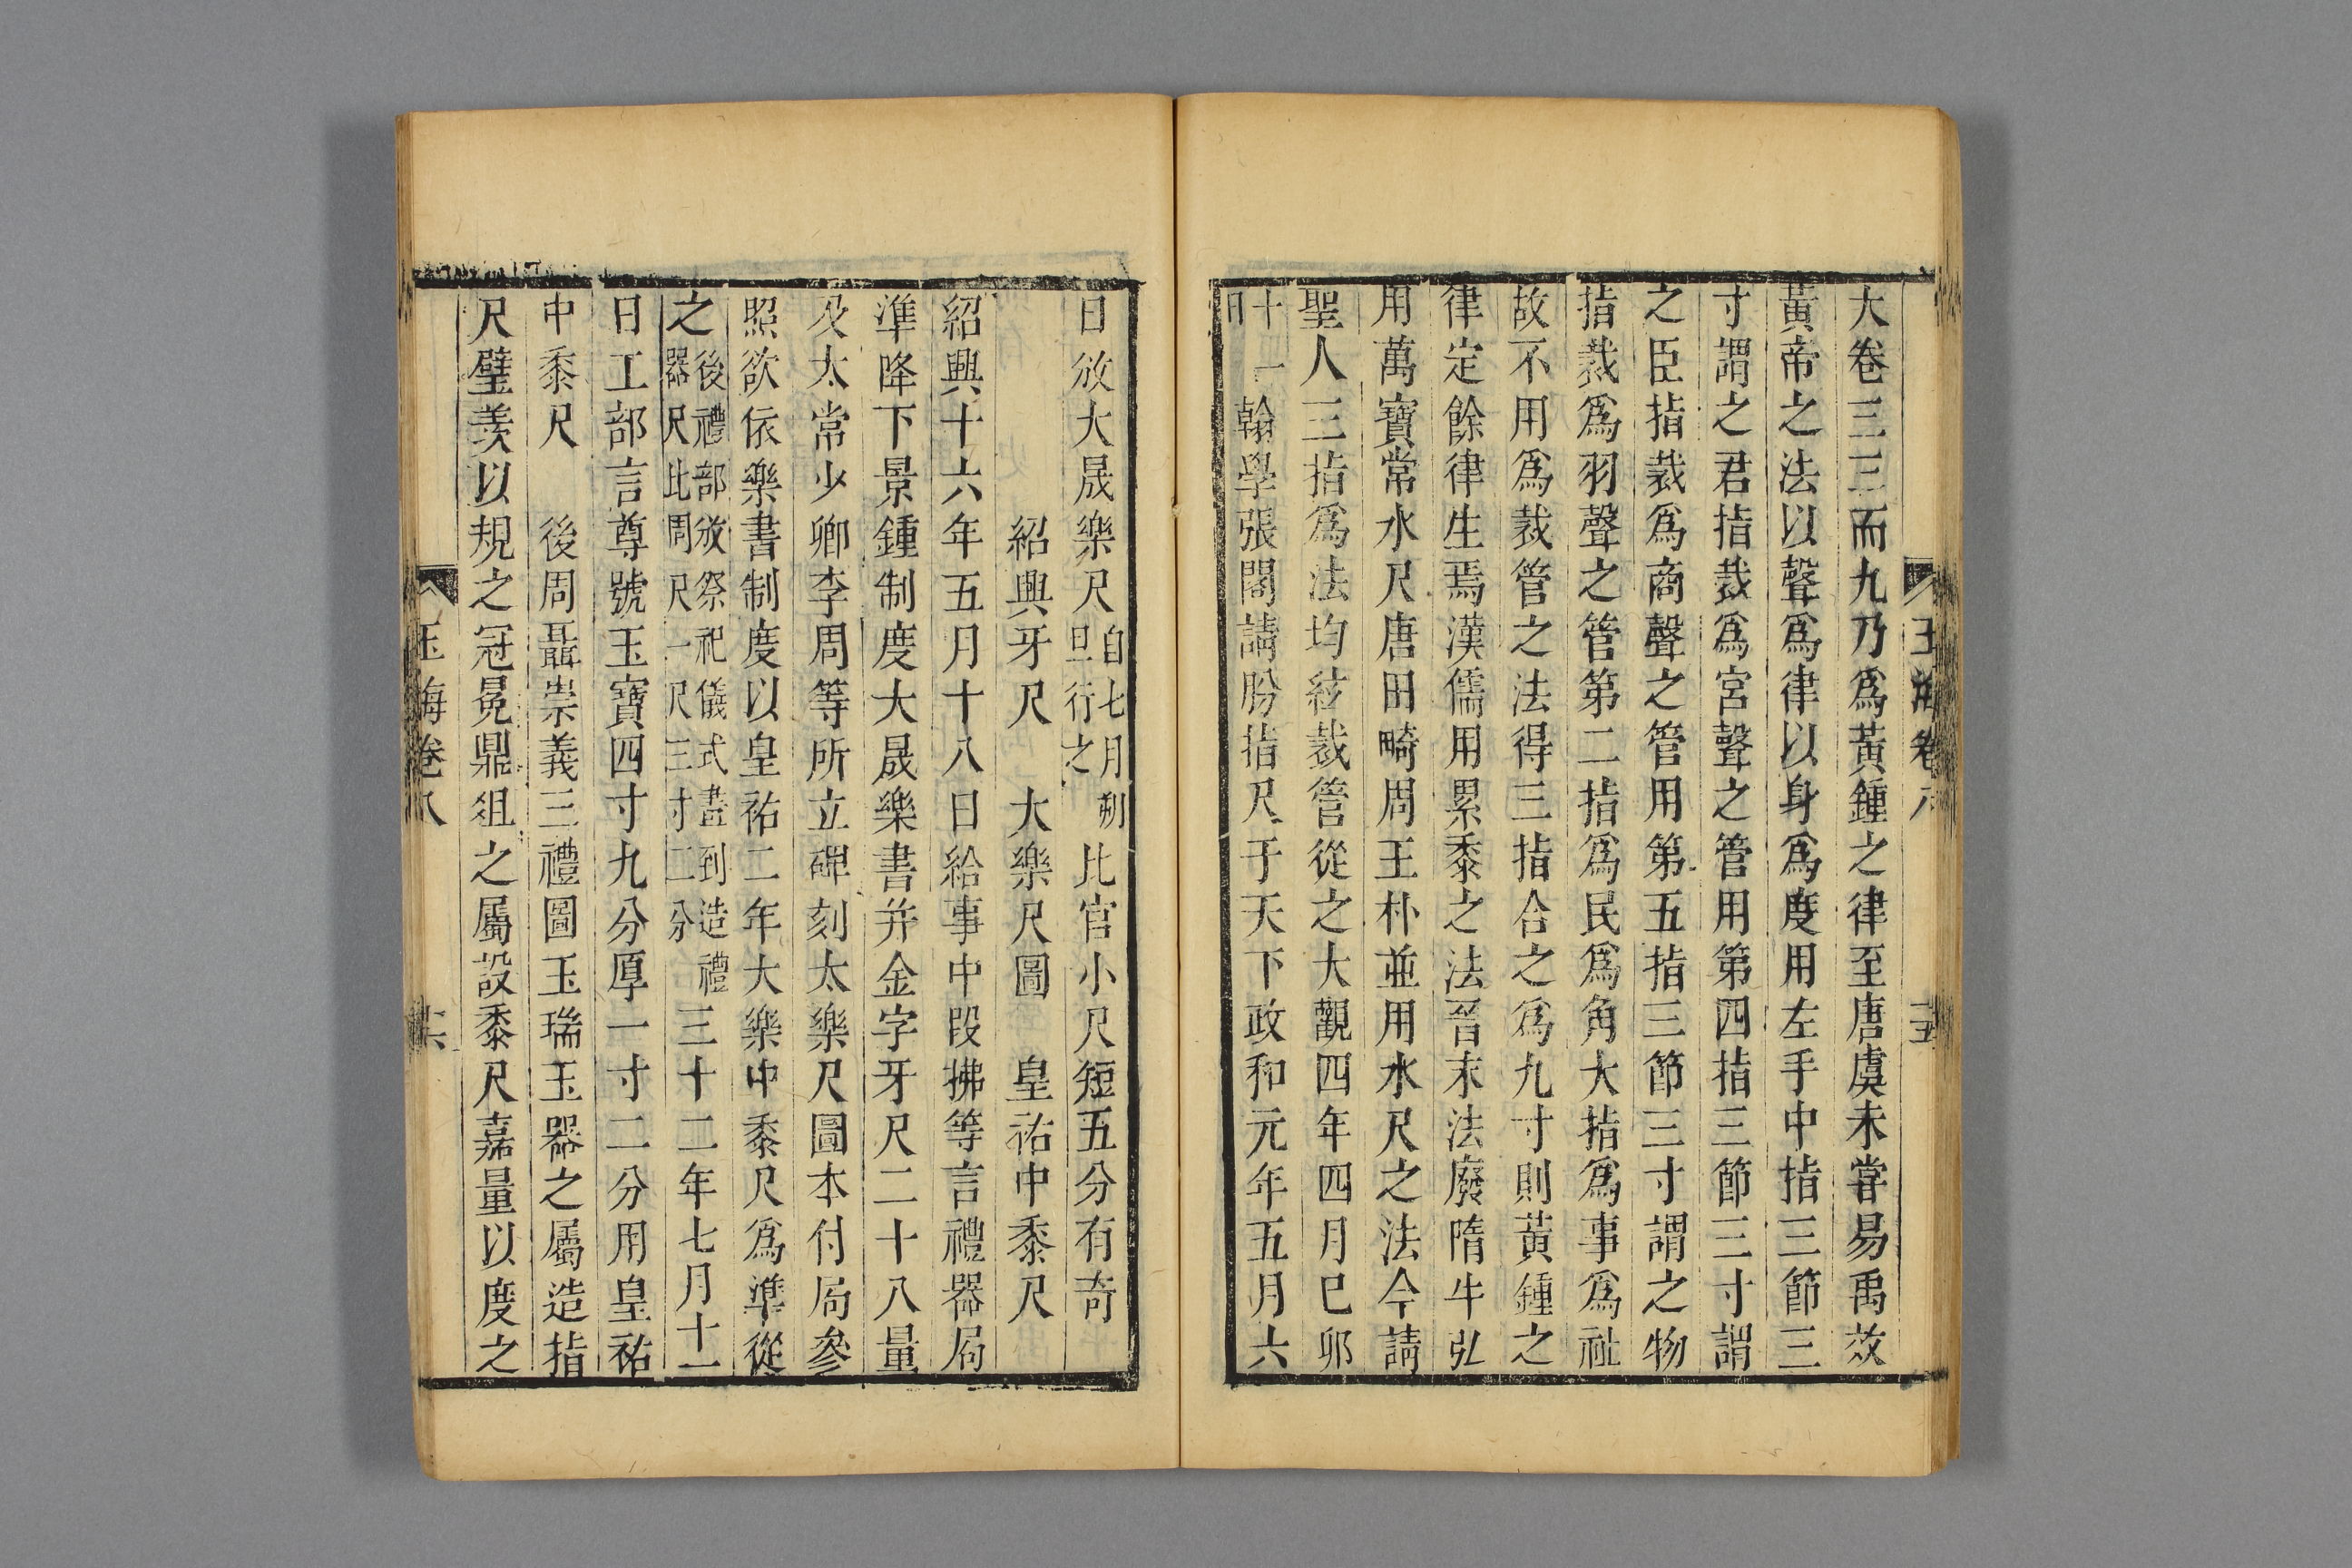 玉海卷八 十五
大卷三三而九乃爲黃鍾之律至唐虞未甞易禹效
黃帝之法以聲爲律以身爲度用左手中指三節三
寸謂之君指裁爲宮聲之管用第四指三節三寸謂
之臣指裁爲商聲之管用第五指三節三寸謂之物
指裁爲羽聲之管第二指爲民爲角大指爲事爲祉
故不用爲裁管之法得三指合之爲九寸則黃鍾之
律定餘律生焉漢儒用累黍之法晉末法廢隋牛弘
用萬寶常水尺唐田畸周王朴並用水尺之法今請
聖人三指爲法均絃裁管從之大觀四年四月已卯
十一
日
翰學張閣請肦指尺于天下政和元年五月六
日攽大晟樂尺
自七月朔
旦行之
比官小尺短五分有奇
紹興牙尺 大樂尺圖 皇祐中黍尺
紹興十六年五月十八日給事中段拂等言禮器局
準降下景鍾制度大晟樂書并金字牙尺二十八量
及太常少卿李周等所立碑刻太樂尺圖本付局參
照欲依樂書制度以皇祐二年大樂中黍尺爲準從
之
後禮部攽祭祀儀式畫到造禮
器尺此周尺一尺三寸二分
三十二年七月十一
日工部言尊號玉寶四寸九分厚一寸二分用皇祐
中黍尺 後周聶崇義三禮圖玉瑞玉器之屬造指
尺璧羨以規之冠冕鼎俎之屬設黍尺嘉量以度之
玉海卷八 十六